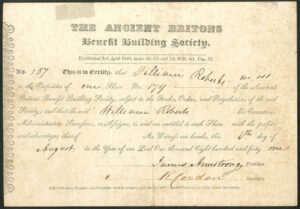 THE ANCIENT BRITONS
Benefit Building Society.
No. 157 This is to Certify, that William Roberts
is the Proprietor of one Share No. 179 of the Ancient
Britons Benefit Building Society, subject to the Rules, Orders, and Regulations of the said
Society; and that the said William Roberts his Executors,
Administrators, Successors, or Assigns, is and are entitled to such Share with the profits
and advantages thereof As Witness our hands, this 6th day of
August, in the Year of our Lord One Thousand Eight Hundred and forty one
James Armstrong, President.